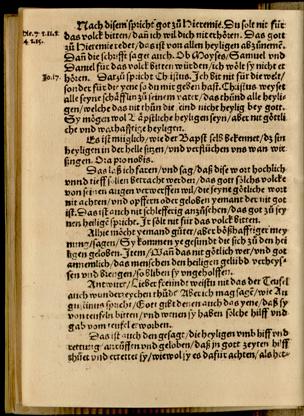 Nach disem spricht got zů Hieremie. Du solt nit für
Hie. 7. 11. 8.
das volck bitten / dañ ich wil dich nit erhören. Das got
4. 2. 15.
zů Hieremie redet / das ist von allen heyligen abzůnemē.
Dañ die schrifft saget auch. Ob Moyses / Samuel vnd
Daniel für das volck bitten würden / ich wölt sy nicht er
Jo. 17.
hören. Darzů spricht Christus. Ich bit nit für die welt /
sonder für die yene so du mir geben hast. Christus weyset
alle seyne schäfflin zů seinem vater / das thůnd alle heyli
gen / welche das nit thůn die sind nicht heylig by got.
Sy mögen wol Bäpstliche heyligen seyn / aber nit göttli
che vnd warhafftige heyligen.
Es ist müglich / wie der Bapst selb bekennet / dz sein
heyligen in der helle sitzen / vnd verflůchen vns wan wir
singen. Ora pro nobis.
Das laß ich faren / vnd sag / daß dise wort hochlich
vnnd tieff sollen betrachtet werden / das got solchs volck
von seinen augen verwerffen wil / die seynt götliche wort
nit achten / vnd opffern oder geloben yemant der nit got
ist. Das ist auch nit schlefferig anzůsehen / das got zů sey
nen heiligē spricht. Ir solt nit für das volck bitten.
Alhie möcht yemand gůter / aber bößhafftiger mey
nung / sagen / Sy kommen ye gesunde die sich zů den hei
ligen geloben. Item / Wañ das nit götlich wer / vnd got
annemlich / das menschen den heiligen gelübd verheys-
sen vnd brengen / so bliben sy vngeholffen.
Antwurt / Lieber freündt weistu nit das der Teüfel
auch wunderzeychen thůt? Aber ich mag sagē / wie Au
gustinus spricht / Got gibt den en auch das yene / daß sy
von teüfeln bitten / vnd wenen sy haben solche hilff vnd
gab vom teüfel erworben.
Das ist auch den gesagt / die heyligen vmb hilff vnd
rettung / anrüffen vnd geloben / daß in gott zeyten hilff
thůet vnd errettet sy / wiewol sy es dafür achten / als het-